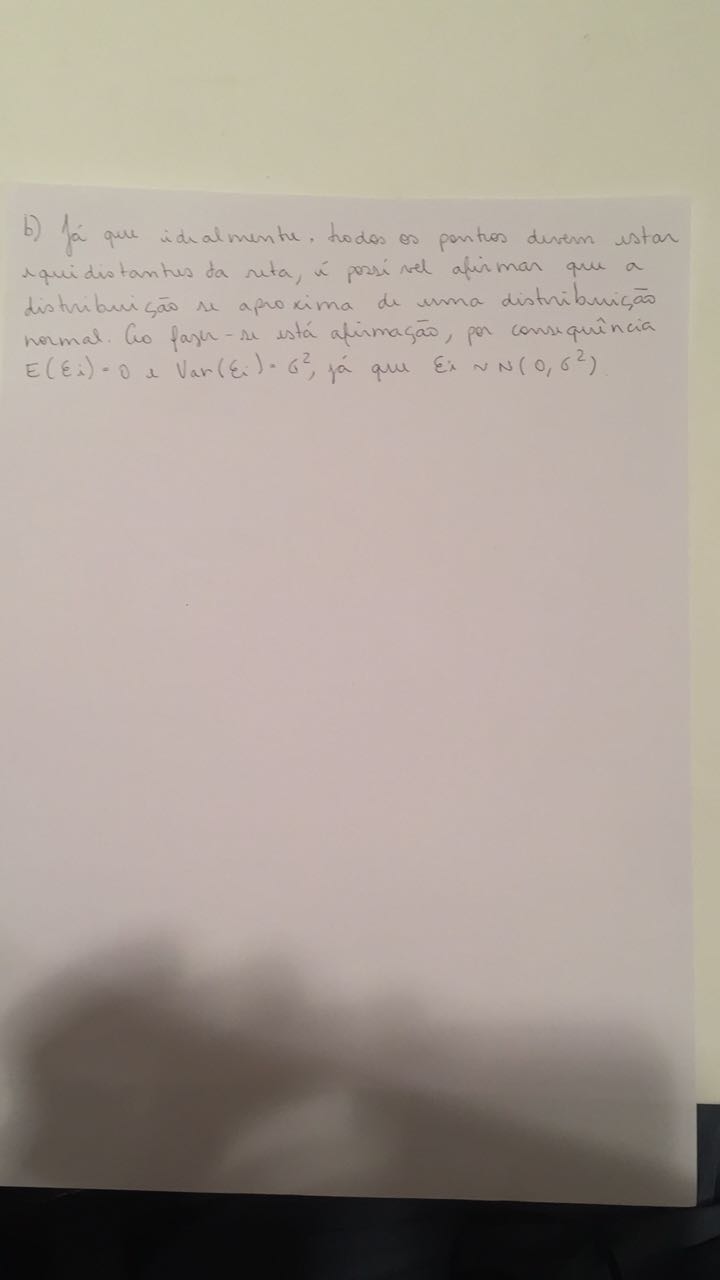 b) Já que idealmente, todos os pontos devem estar
equidistantes da reta, é possível afirmar que a
distribuição se aproxima de uma distribuição
normal. Ao fazer-se está afirmação, por consequência
E(εi)=0 e Var(εi)=σ², já que εi ~ N(0,σ²)